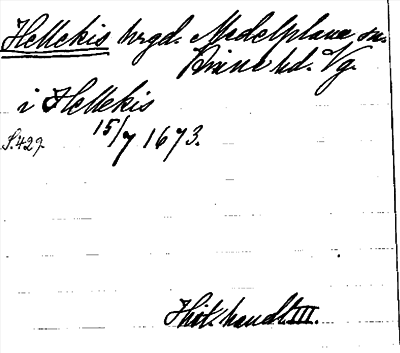 Hellekis hrgd. Medelplana sn.
Kinne hd. Vg.
i Hellekis
S. 427. 15/7 1673.
Hist. handl. III.